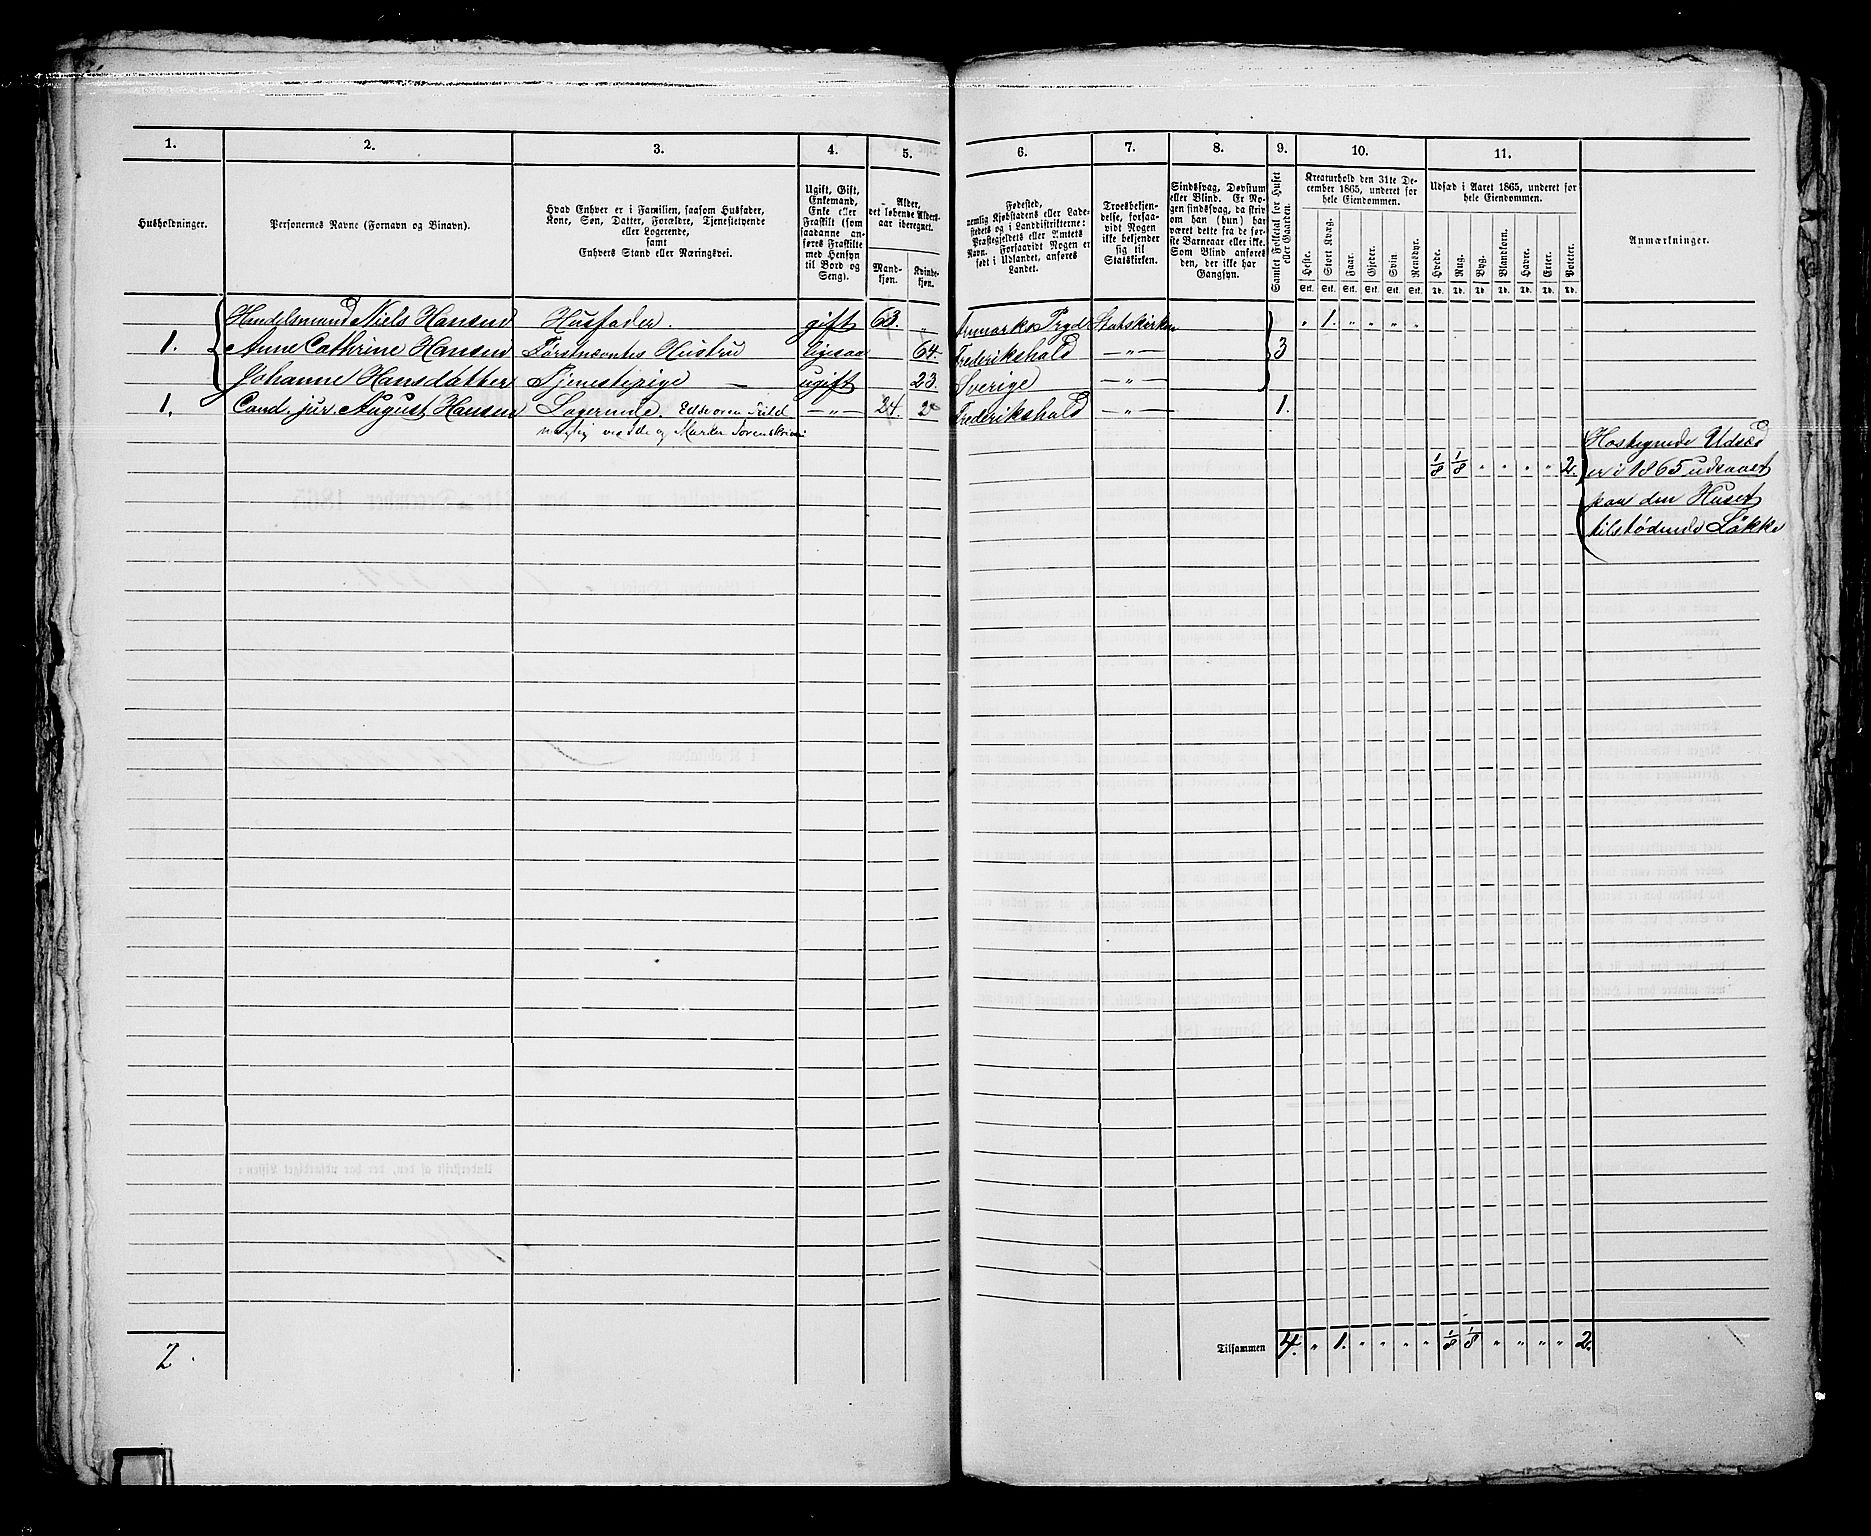 1. 2. 3. 4. 5. 6. 7. 8. 9. 10. 11.
Husholdninger.
Personernes Navne (Fornavn og Binavn).
Hvad Enhver er i Familien, saasom Husfader,
Kone, Søn, Datter, Forældre, Tjenestetyende
eller Logerende,
samt
Enhvers Stand eller Næringsvei.
Ugift, Gift,
Enkemand,
Enke eller
Fraskilt (som
saadanne an-
føres Fraskilte
med Hensyn
til Bord og
Seng).
Alder,
det løbende Alders-
aar iberegnet.
Mand-
kjøn.
Kvinde-
kjøn.
Fødested,
nemlig Kjøbstadens eller Lade-
stedets og i Landdistrikterne:
Præstegjeldets eller Amtets
Navn. Forsaavidt Nogen er
født i Udlandet, anføres
Landet.
Troesbekjen-
delse, forsaa-
vidt Nogen
ikke bekjender
sig til
Statskirken.
Sindssvag, Døvstum
eller Blind. Er No-
gen sindssvag, da skriv
om han (hun) har
været dette fra de før-
ste Barneaar eller ikke.
Som Blind anføres
den, der ikke har
Gangsyn.
Samlet Folketal for Huset
eller Gaarden.
Kreaturhold den 31te De-
cember 1865, underet for
hele Eiendommen.
Heste. Stort Kvæg. Faar. Gjeder. Svin. Rensdyr.
Stk. Stk. Stk. Stk. Stk. Stk.
Udsæd i Aaret 1865, underet for
hele Eiendommen.
Hvede. Rug. Byg. Blandkorn. Havre. Erter. Poteter.
Td. Td. Td. Td. Td. Td. Td.
Anmærkninger.
Handelsmand Niels Hansen Husfader. gift 63. " Statskirken " 1. " " " "
1. Anne Cathrine Hansen Førstnævntes Hustru ligesaa 64. Frederikshald —"— 3
Johanne Hansdatter Tjenestepige — ugift 23. Sverige —"—
1. Cand. jur. August Hansen Logerende. —"— 24. Frederikshald —"— 1.
ved Idde og Marker Sorenskriveri
Hostegnede Udsæd
1/8 1/8 " " " " 2. er i 1865 udsaaet
paa den Huset
tilstødende Løkke
2. Tilsammen 4. " 1. " " " " 1/8 1/8 " " " " 2.